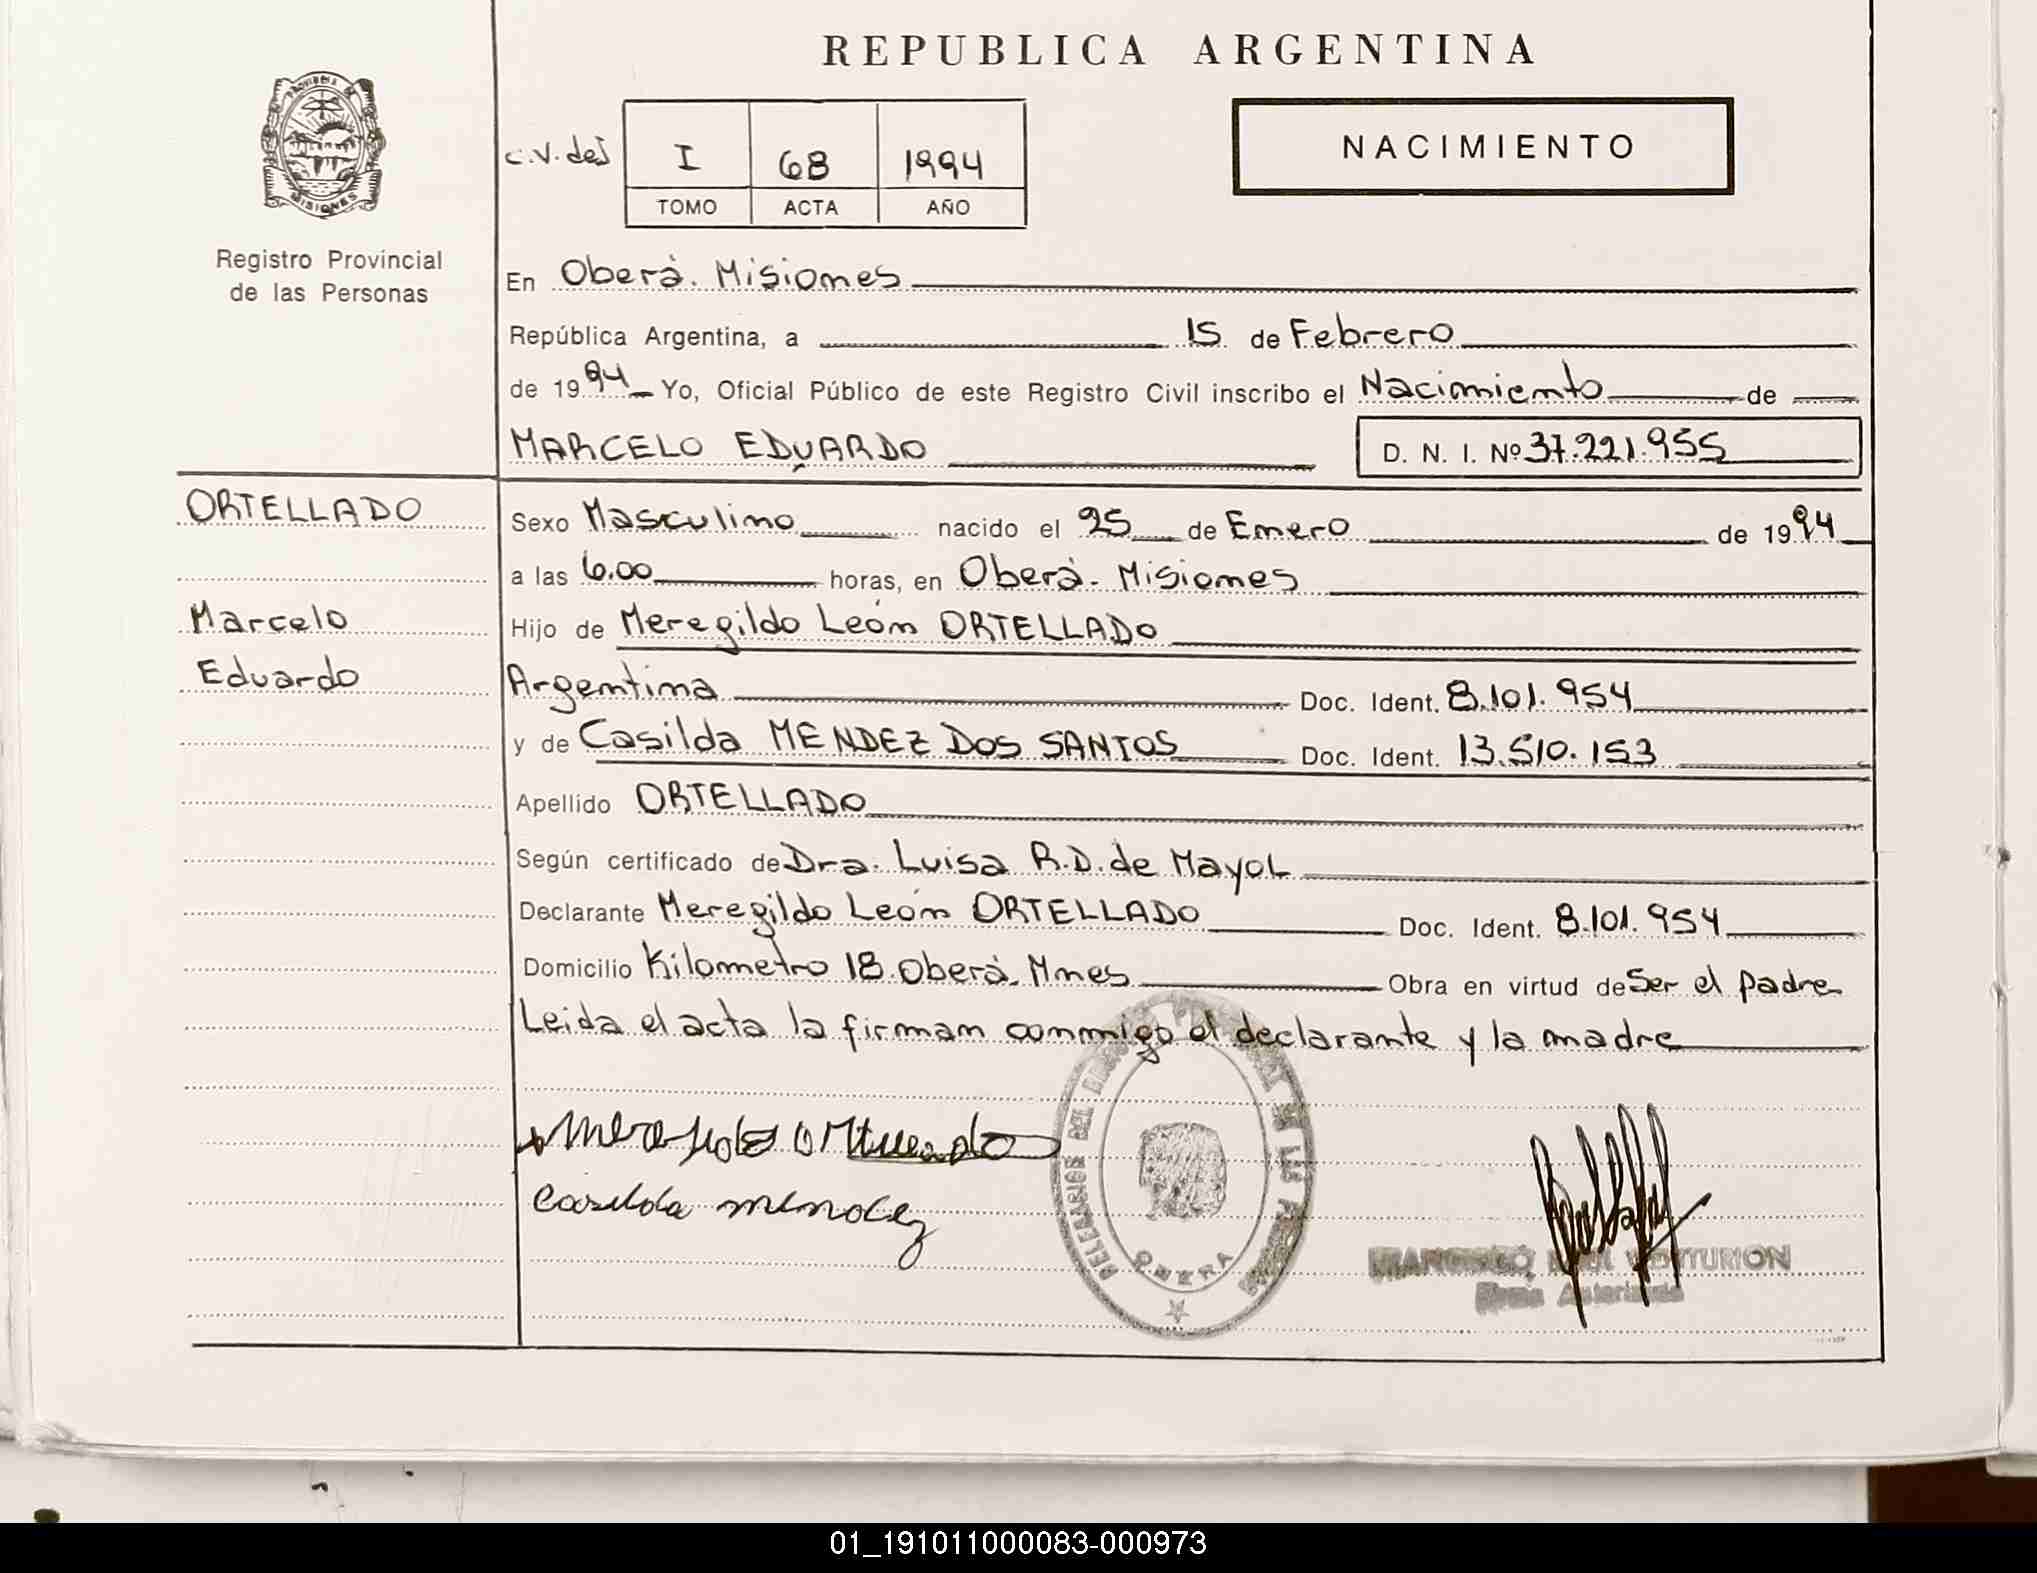 REPUBLICA ARGENTINA
PROVINCIA DE
MISIONES
Registro Provincial
de las Personas
c.v.de
I 68 1994
TOMO ACTA AÑO
NACIMIENTO
En Oberá. Misiones
República Argentina, a 15 de Febrero
de 1994 Yo, Oficial Público de este Registro Civil inscribo el Nacimiento de
MARCELO EDUARDO D. N. I. Nº 37.221.955
ORTELLADO
Marcelo
Eduardo
Sexo Masculino nacido el 25 de Enero de 1994
a las 6.00 horas, en Oberá. Misiones
Hijo de Meregildo León ORTELLADO
Argentina Doc. Ident. 8.101.954
y de Casilda MENDEZ DOS SANTOS Doc. Ident. 13.510.153
Apellido ORTELLADO
Según certificado de Dra. Luisa R.D. de Mayol
Declarante Meregildo León ORTELLADO Doc. Ident. 8.101.954
Domicilio Kilometro 18. Oberá. Mnes Obra en virtud de Ser el padre
Leida el acta la firman conmigo el declarante y la madre
Casilda mendez
OBERA
Firma Autorizada
01_191011000083-000973